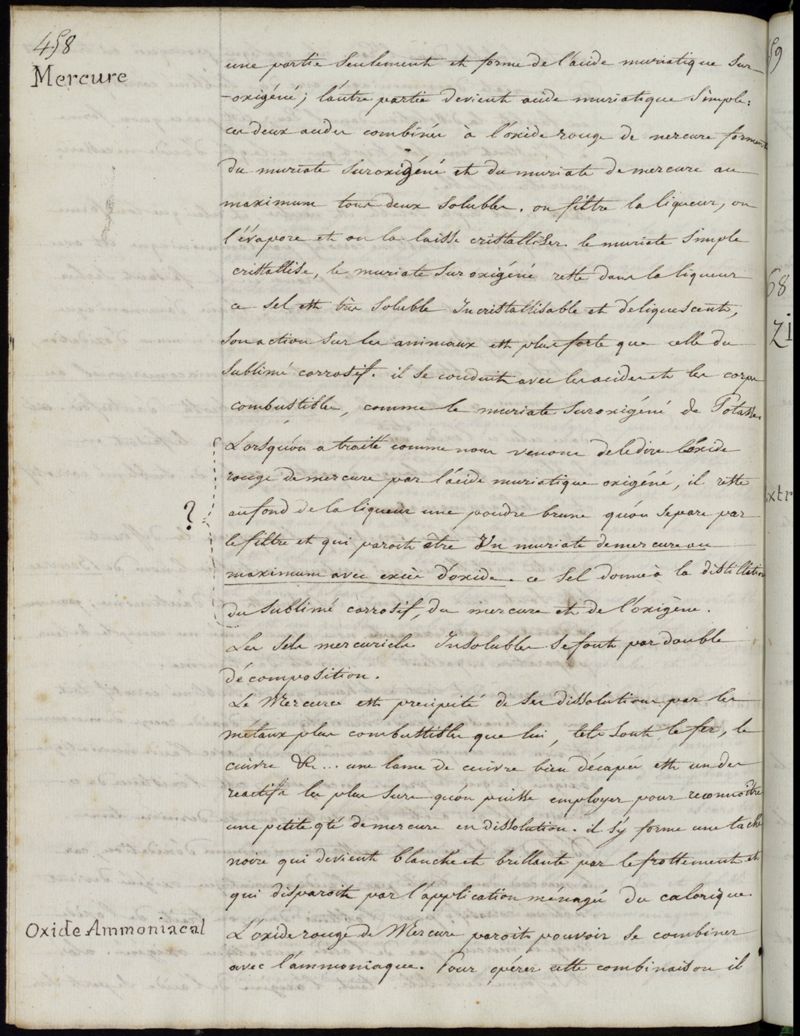 458
Mercure
une partie seulement et forme de l'acide muriatique sur-
-oxigéné; l'autre partie devient acide muriatique simple:
ces deux acides combinés à l'oxide rouge de mercure forment
du muriate suroxigéné et du muriate de mercure au
maximum tous deux solubles. on filtre la liqueur, on
l'évapore et on la laisse cristalliser. le muriate simple
cristallise, le muriate suroxigéné reste dans la liqueur
ce sel est très soluble Incristallisable et déliquescent,
son action sur les animaux est plus forte que celle du
sublimé corrosif. il se conduit avec les acides et les corps
combustibles, comme le muriate suroxigéné de Potasse.
Lorsqu'on a traité comme nous venons de le dire l'oxide
rouge de mercure par l'acide muriatique oxigéné, il reste
?
au fond de la liqueur une poudre brune qu'on separe par
le filtre et qui paroit être Un muriate de mercure au
maximum avec excès d'oxide. ce Sel donne à la distillation
du sublimé corrosif, du mercure et de l'oxigène.
Les sels mercuriels Insolubles se font par double
décomposition.
Le Mercure est precipité de ses dissolutions par les
métaux plus combustibles que lui, tels sont le fer, le
cuivre &c... une lame de cuivre bien décapée est un des
reactifs les plus surs qu'on puisse employer pour reconnoître
une petite qté de mercure en dissolution. il s'y forme une tache
noire qui devient blanche et brillante par le frottement et
qui disparoit par l'application ménagée du calorique.
Oxide Ammoniacal
L'oxide rouge de Mercure paroit pouvoir se combiner
avec l'ammoniaque. Pour opérer cette combinaison il
59
68
Zi
Extr